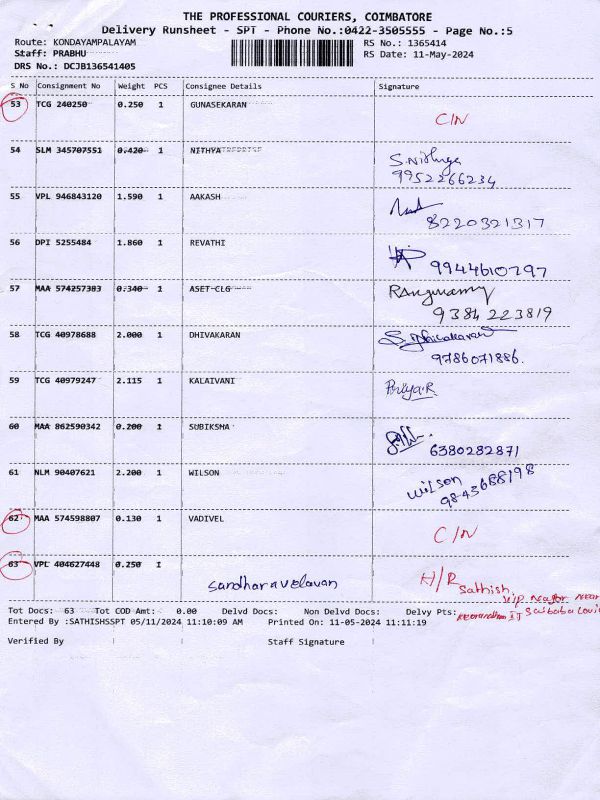 THE PROFESSIONAL COURIERS, COIMBATORE
Delivery Runsheet - SPT - Phone No.:0422-3505555 - Page No.:5
Route: KONDAYAMPALAYAM RS No.: 1365414
Staff: PRABHU RS Date: 11-May-2024
DRS No.: DCJB136541405
S No Consignment No Weight PCS Consignee Details Signature
53 TCG 240250 0.250 1 GUNASEKARAN
C/N
54 SLM 345707551 0.420 1 NITHYA
S.Nithya
9952266234
55 VPL 946843120 1.590 1 AAKASH
8220321317
56 DPI 5255484 1.860 1 REVATHI
9944610797
57 MAA 574257383 0.340 1 ASET-CLG
Rangasamy
9384223819
58 TCG 40978688 2.000 1 DHIVAKARAN
S. Dhivakaran
9786071886.
59 TCG 40979247 2.115 1 KALAIVANI
Priya.R
60 MAA 862590342 0.200 1 SUBIKSHA
6380282871
61 NLM 90407621 2.200 1 WILSON
Wilson
9843688198
62 MAA 574598807 0.130 1 VADIVEL
C/N
63 VPL 404627448 0.250 1
Sandharavelavan
H/R
Sathish
Tot Docs: 63 Tot COD Amt: 0.00 Delvd Docs: Non Delvd Docs: Delvy Pts:
Entered By :SATHISHSSPT 05/11/2024 11:10:09 AM Printed On: 11-05-2024 11:11:19
Verified By Staff Signature